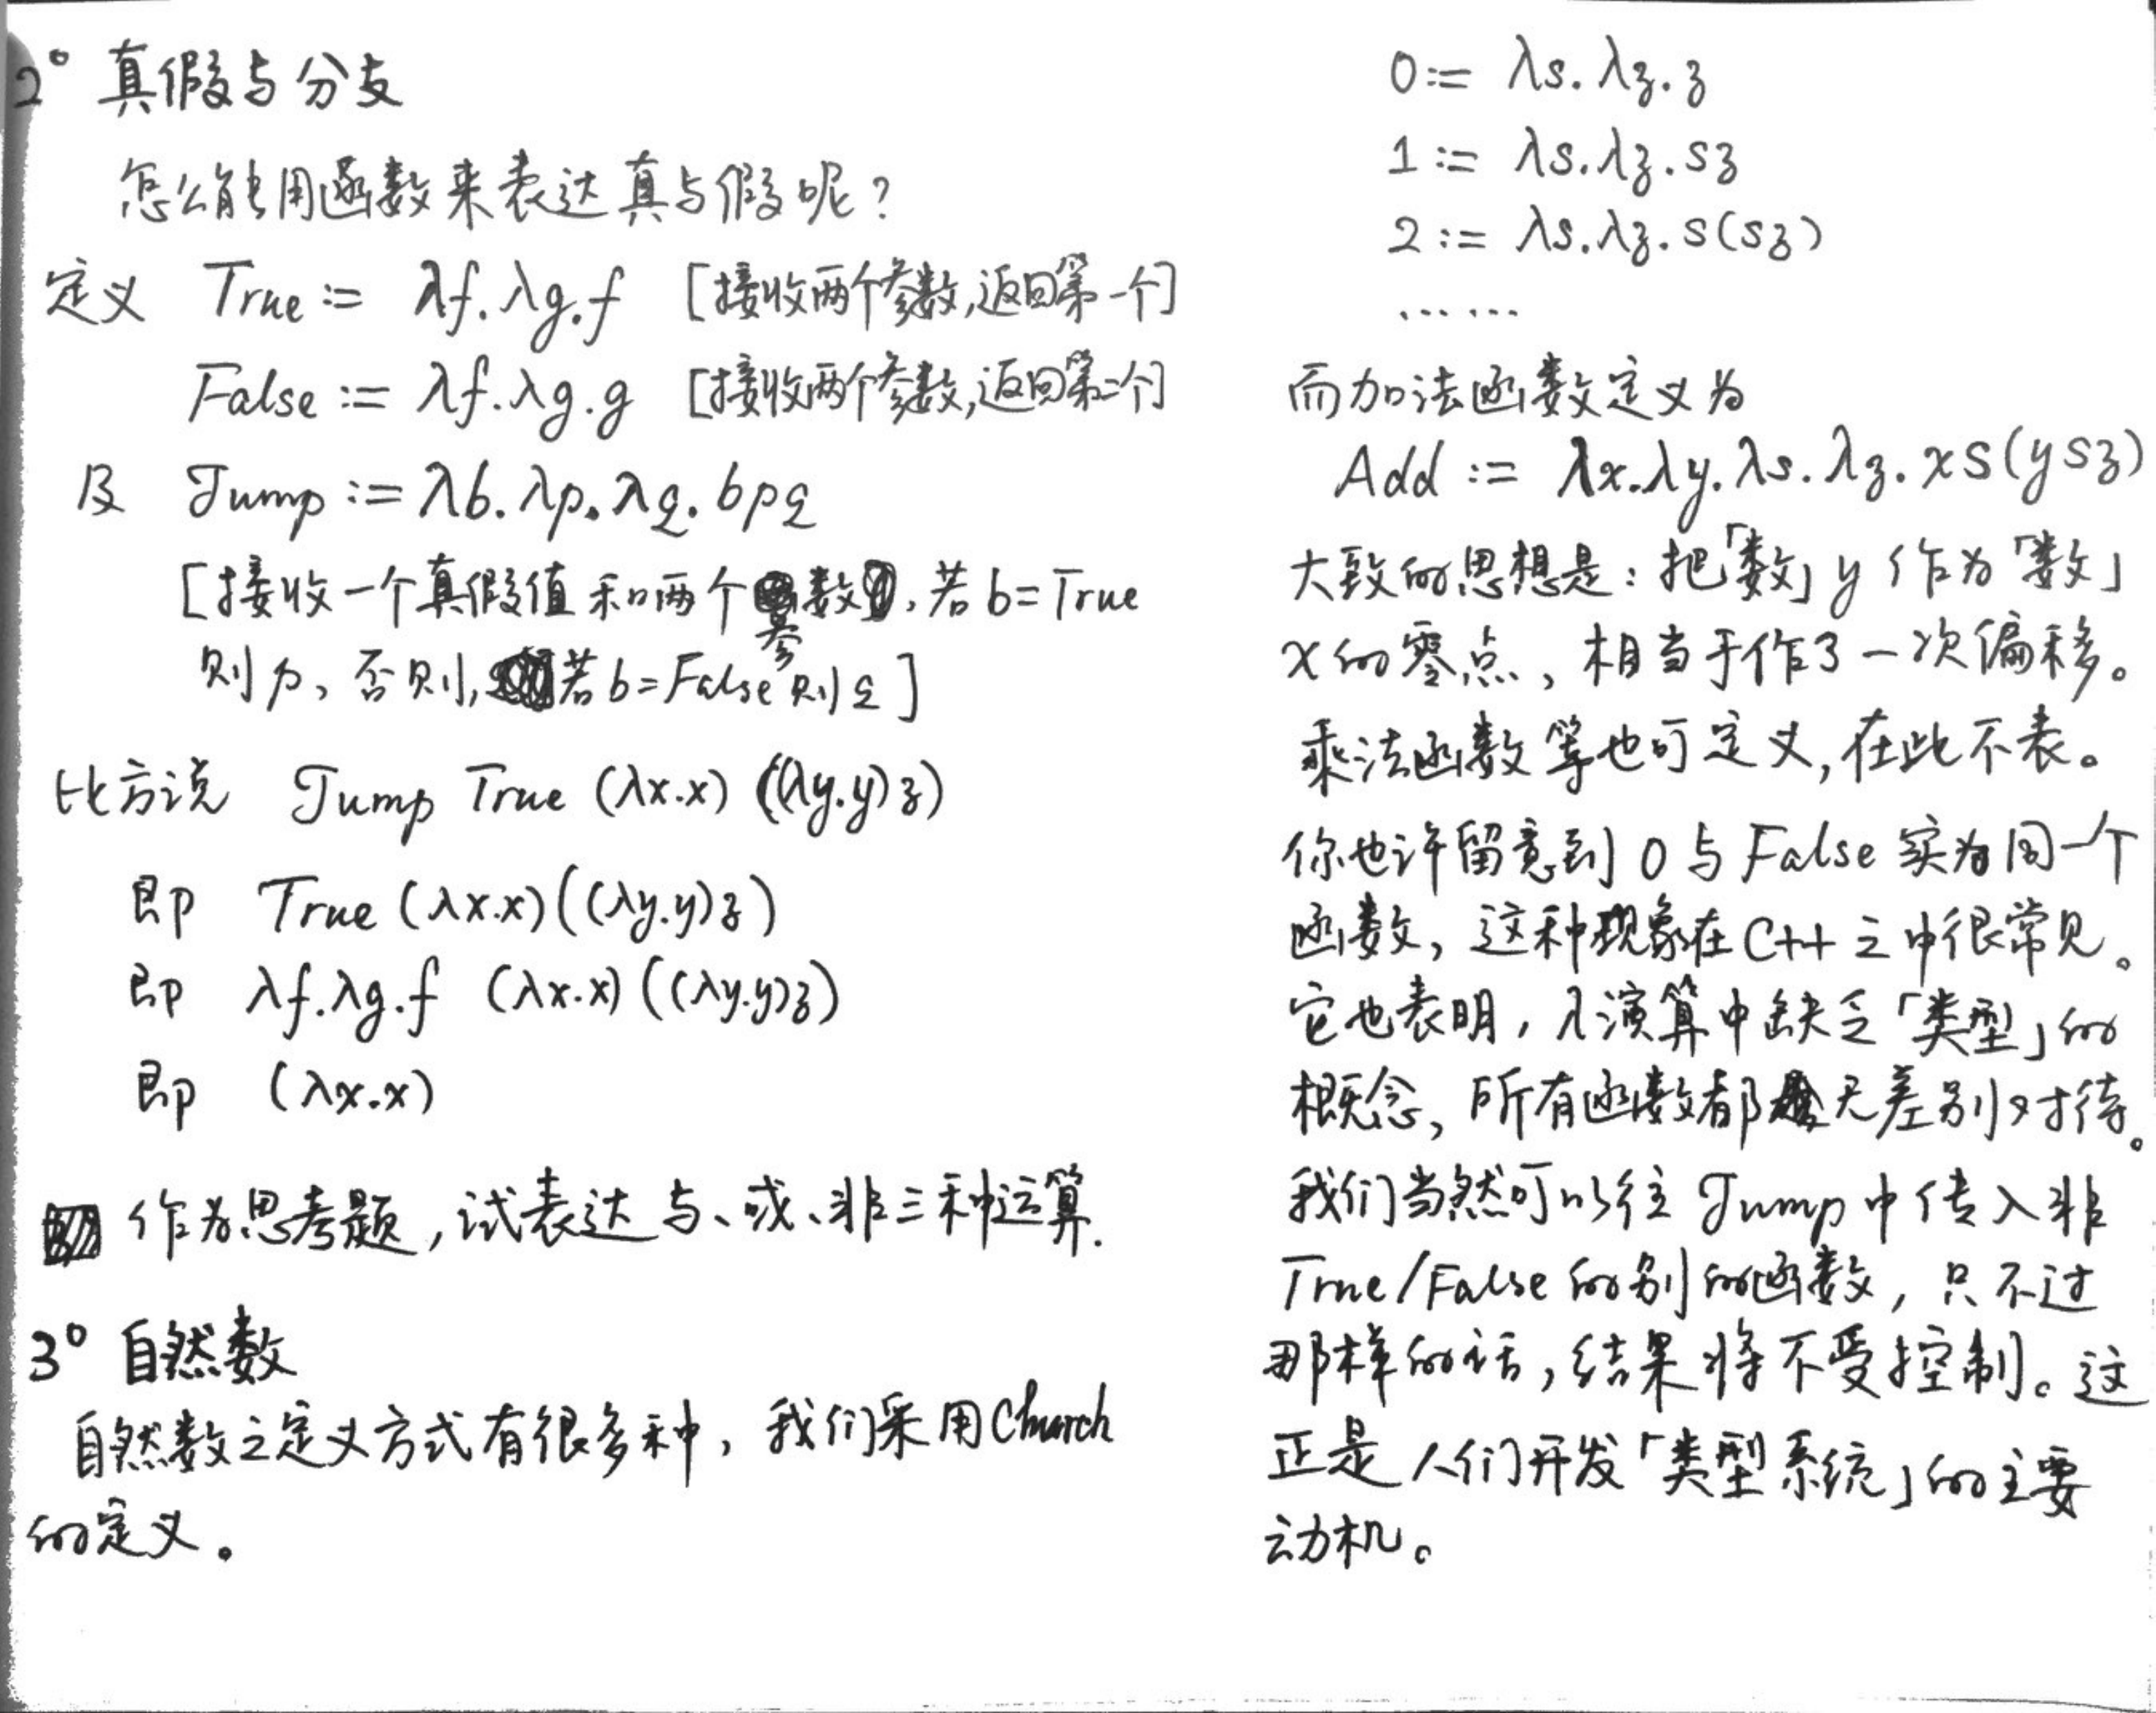 2° 真假与分支
怎么能用函数来表达真与假呢?
定义 True := λf.λg.f [接收两个参数,返回第一个]
False := λf.λg.g [接收两个参数,返回第二个]
及 Jump := λb.λp.λq.bpq
[接收一个真假值和两个参数,若b=True
则p、否则,若b=False则q]
比方说 Jump True (λx.x) ((λy.y)z)
即 True (λx.x)((λy.y)z)
即 λf.λg.f (λx.x)((λy.y)z)
即 (λx.x)
作为思考题,试表达与、或、非三种运算.
3° 自然数
自然数之定义方式有很多种,我们采用Church
的定义。
0 := λs.λz.z
1 := λs.λz.sz
2 := λs.λz.s(sz)
……
而加法函数定义为
Add := λx.λy.λs.λz.xs(ysz)
大致的思想是:把「数」y作为「数」
x的零点,相当于作了一次偏移。
乘法函数等也可定义,在此不表。
你也许留意到0与False实为同一个
函数,这种现象在C++之中很常见。
它也表明,λ演算中缺乏「类型」的
概念,所有函数都无差别对待。
我们当然可以往Jump中传入非
True/False的别的函数,只不过
那样的话,结果将不受控制。这
正是人们开发「类型系统」的主要
动机。